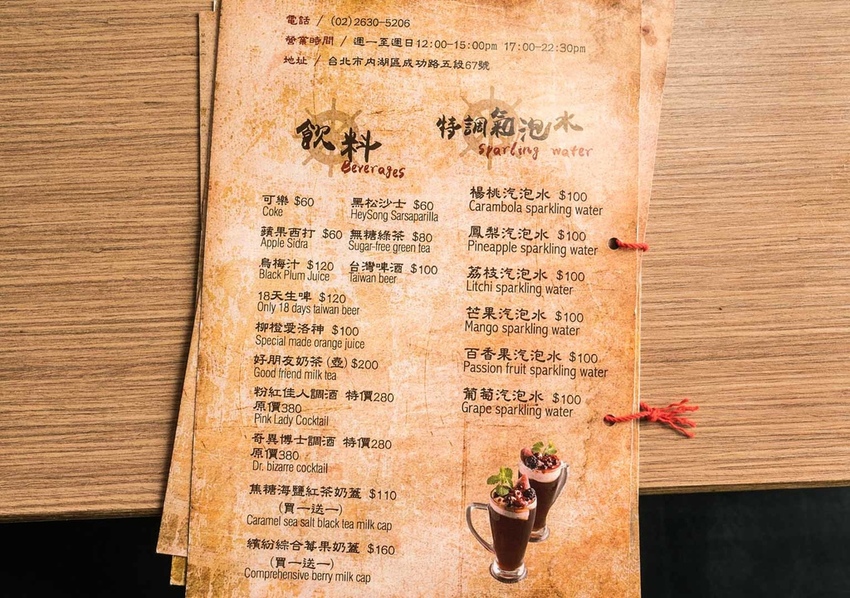 電話 / (02)2630-5206
營業時間 / 週一至週日12:00-15:00pm 17:00-22:30pm
地址 / 台北市內湖區成功路五段67號
飲料
Beverages
可樂 $60 黑松沙士 $60
Coke HeySong Sarsaparilla
蘋果西打 $60 無糖綠茶 $80
Apple Sidra Sugar-free green tea
烏梅汁 $120 台灣啤酒 $100
Black Plum Juice Taiwan beer
18天生啤 $120
Only 18 days taiwan beer
柳橙愛洛神 $100
Special made orange juice
好朋友奶茶(壺)$200
Good friend milk tea
粉紅佳人調酒 特價280
原價380
Pink Lady Cocktail
奇異博士調酒 特價280
原價380
Dr. bizarre cocktail
焦糖海鹽紅茶奶蓋 $110
(買一送一)
Caramel sea salt black tea milk cap
繽紛綜合莓果奶蓋 $160
(買一送一)
Comprehensive berry milk cap
特調氣泡水
Sparling water
楊桃汽泡水 $100
Carambola sparkling water
鳳梨汽泡水 $100
Pineapple sparkling water
荔枝汽泡水 $100
Litchi sparkling water
芒果汽泡水 $100
Mango sparkling water
百香果汽泡水 $100
Passion fruit sparkling water
葡萄汽泡水 $100
Grape sparkling water